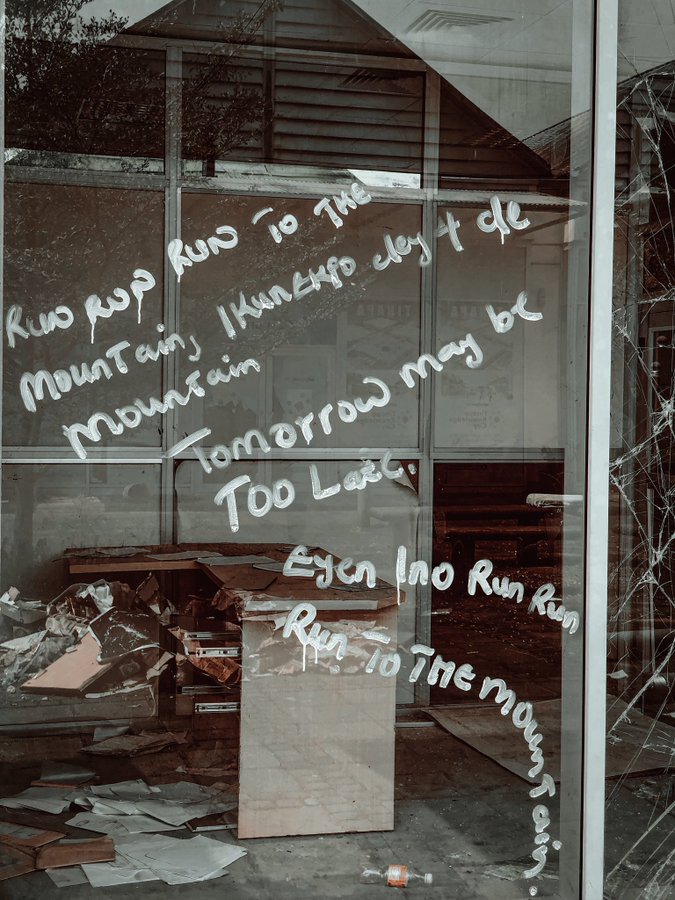 RUN RUN RUN To THE
MOUNTain, IKUNEKPO dey 4 de
MOUNTain
Tomorrow may be
Too Late.
Eyen Ino Run Run
Run To THE mounTain.